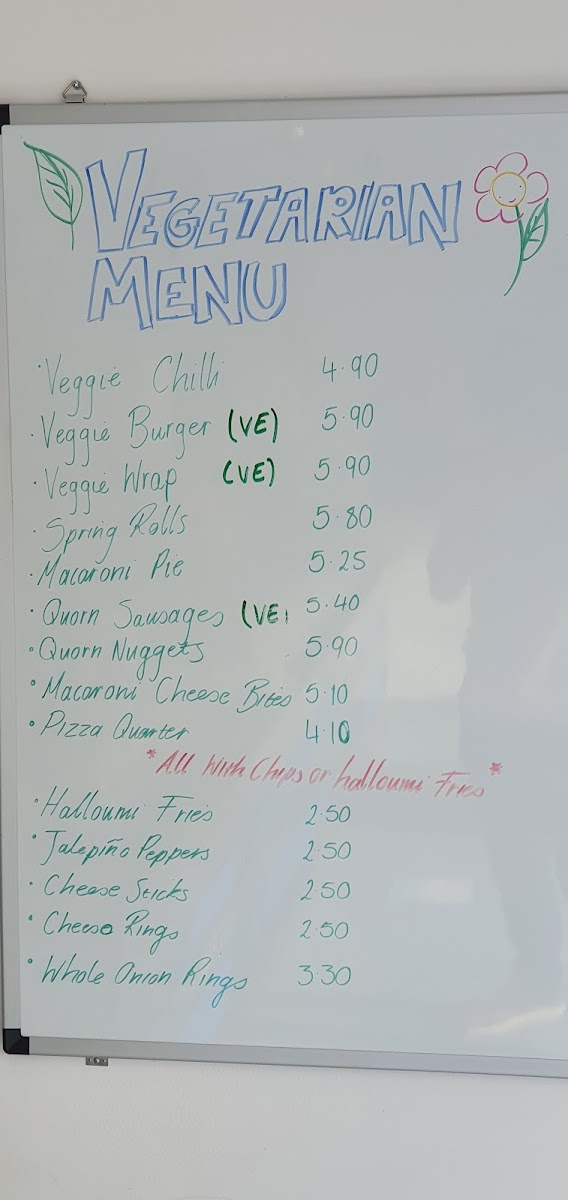 VEGETARIAN
MENU
· Veggie Chilli 4.90
· Veggie Burger (VE) 5.90
· Veggie Wrap (VE) 5.90
· Spring Rolls 5.80
· Macaroni Pie 5.25
· Quorn Sausages (VE) 5.40
· Quorn Nuggets 5.90
· Macaroni Cheese Bites 5.10
· Pizza Quarter 4.10
*All With Chips or halloumi Fries*
· Halloumi Fries 2.50
· Jalepiño Peppers 2.50
· Cheese Sticks 2.50
· Cheese Rings 2.50
· Whole Onion Rings 3.30